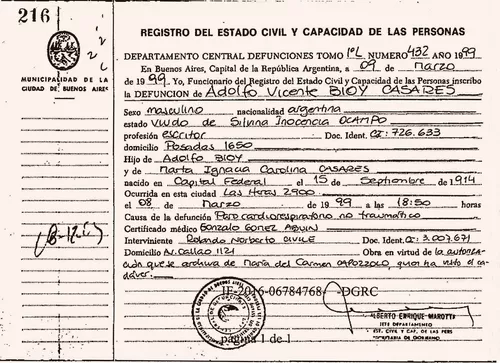 216
MUNICIPALIDAD DE LA
CIUDAD DE BUENOS AIRES
REGISTRO DEL ESTADO CIVIL Y CAPACIDAD DE LAS PERSONAS
DEPARTAMENTO CENTRAL DEFUNCIONES TOMO 1ºL NUMERO 432 AÑO 1999
En Buenos Aires, Capital de la República Argentina, a 09 de Marzo
de 1999 Yo, Funcionario del Registro del Estado Civil y Capacidad de las Personas inscribo
la DEFUNCION de Adolfo Vicente BIOY CASARES
Sexo masculino nacionalidad argentina
estado viudo de Silvina Inocencia OCAMPO
profesión escritor Doc. Ident. CI: 726.633
domicilio Posadas 1650
Hijo de Adolfo BIOY
y de Marta Ignacia Carolina CASARES
nacido en Capital Federal el 15 de Septiembre de 1914
Ocurrida en esta ciudad Las Heras 2900
el 08 de Marzo de 1999 a las 18:50 horas
Causa de la defunción Paro cardiorespiratorio no traumático
Certificado médico Gonzalo Gomez
Interviniente Rolando Norberto CIVILE Doc. Ident. CI: 3.007.671
Domicilio Av. Callao 1121 Obra en virtud de la autoriza-
ción que se archiva de María del Carmen CAPOZZOLO, quien ha visto el ca-
dáver.
IF-2016-06784768- -DGRC
ALBERTO ENRIQUE MAROTTA
JEFE DEPARTAMENTO
EST. CIVIL Y CAP. DE LAS PERS.
SECRETARIA DE GOBIERNO
página 1 de 1